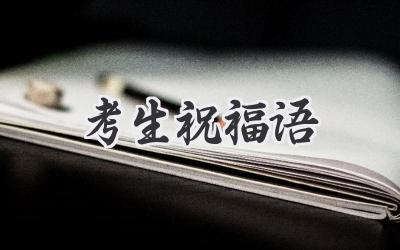 考生祝福语